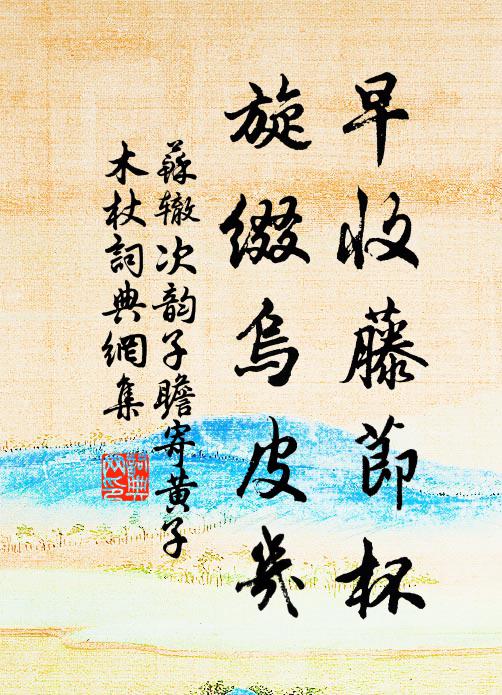 早收藤節杯
旋綴烏皮几
蘇辙次韵子瞻寄黄子
木杖詞典網集
詞典